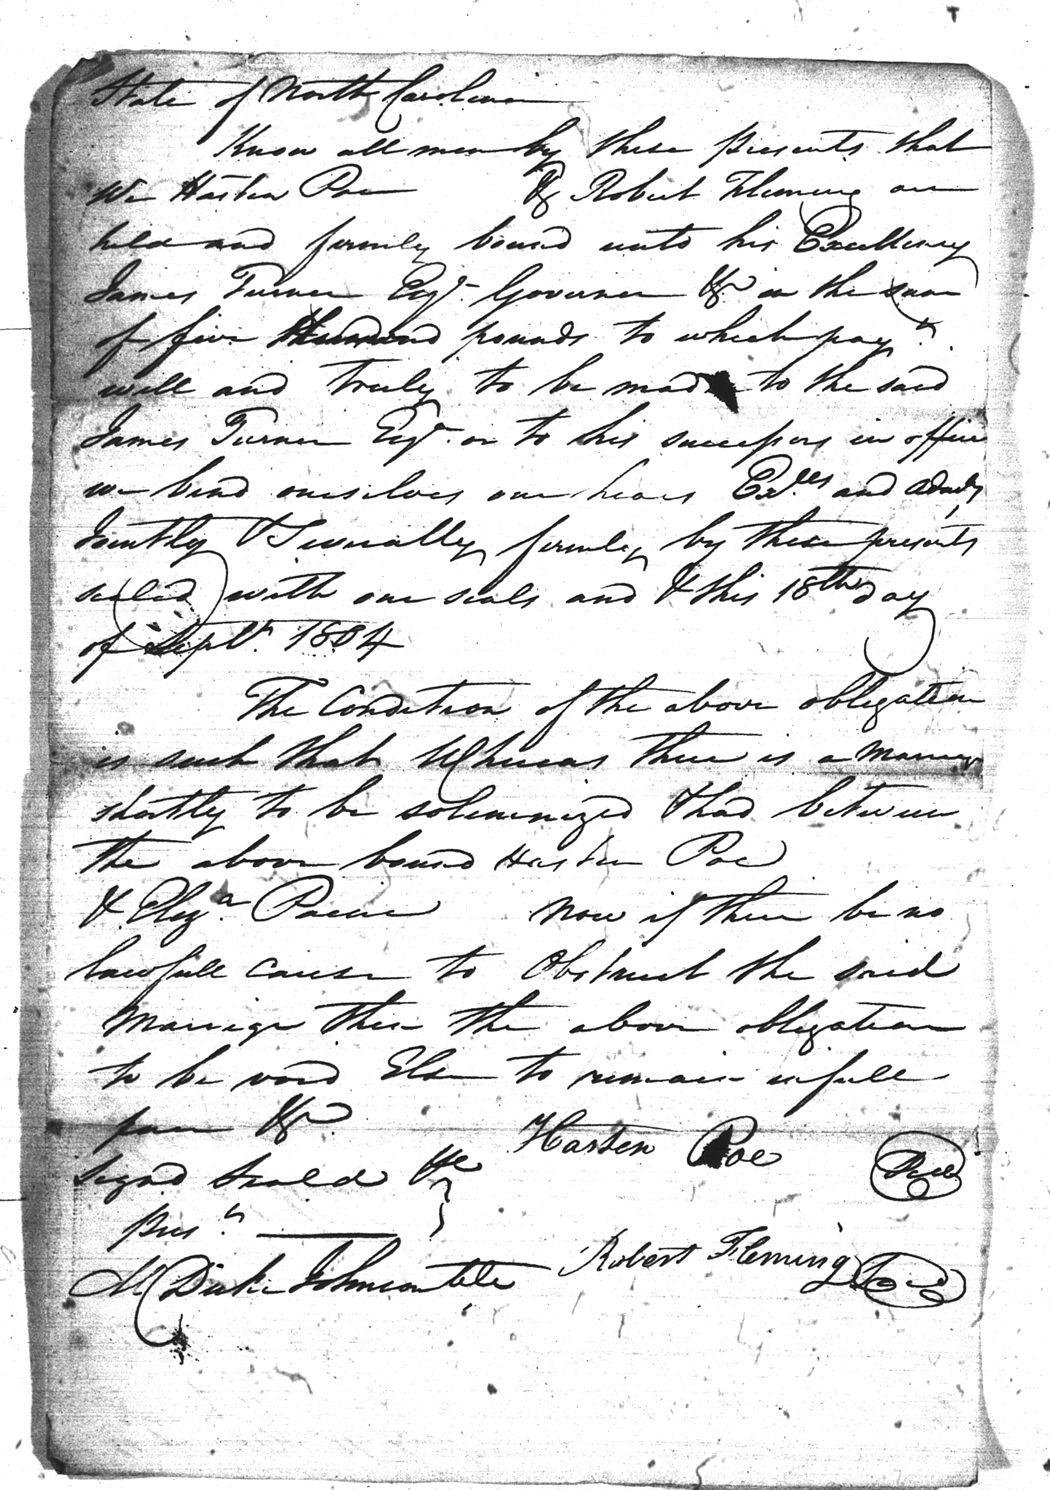 State of North Carolina
Know all men by these presents that
We Hasten Poe & Robert Fleming are
held and firmly bound unto his Excellency
James Turner Esqr. Governer &c in the sum
of five Hundred pounds to which paymt.
well and truly to be made to the said
James Turner Esqr. or to his successors in office
we bind ourselves our heirs Exors and Admrs
Jointly & Severally, firmly, by these presents
sealed with our seals and & this 18th day
of Septr. 1804
The Condition of the above obligation
is such that Whereas there is a Marriage
shortly to be solemnized & had between
the above bound Hasten Poe
& Eliza. Now if there be no
lawfull cause to Obstruct the said
Marriage then the above obligation
to be void Else to remain in full
force &c
Hasten Poe Seal
Signd Seald &c
Pres.
Robert Fleming Seal
M Duke Johnson